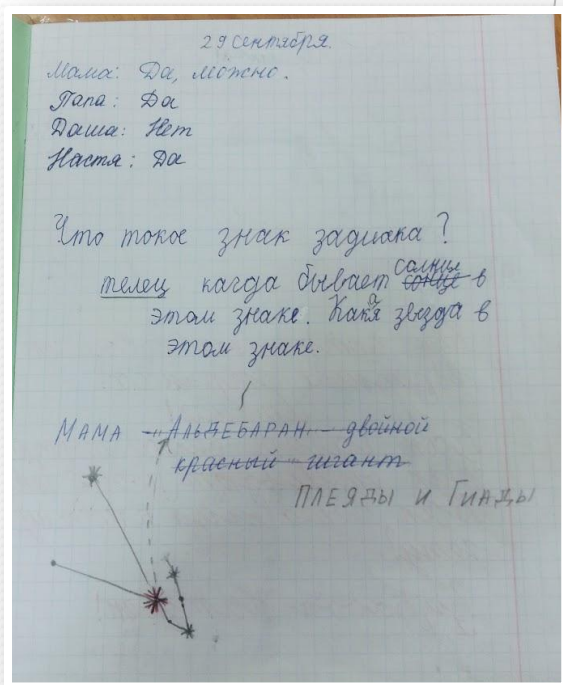 29 сентября.
Мама: Да, можно.
Папа: Да
Даша: Нет
Настя: Да
Что токое знак задиака?
телец кагда бывает солнце сонце в
этом знаке. Какая звезда в
этом знаке.
МАМА - "АЛЬДЕБАРАН" - двойной
красный гигант
ПЛЕЯДЫ И ГИАДЫ